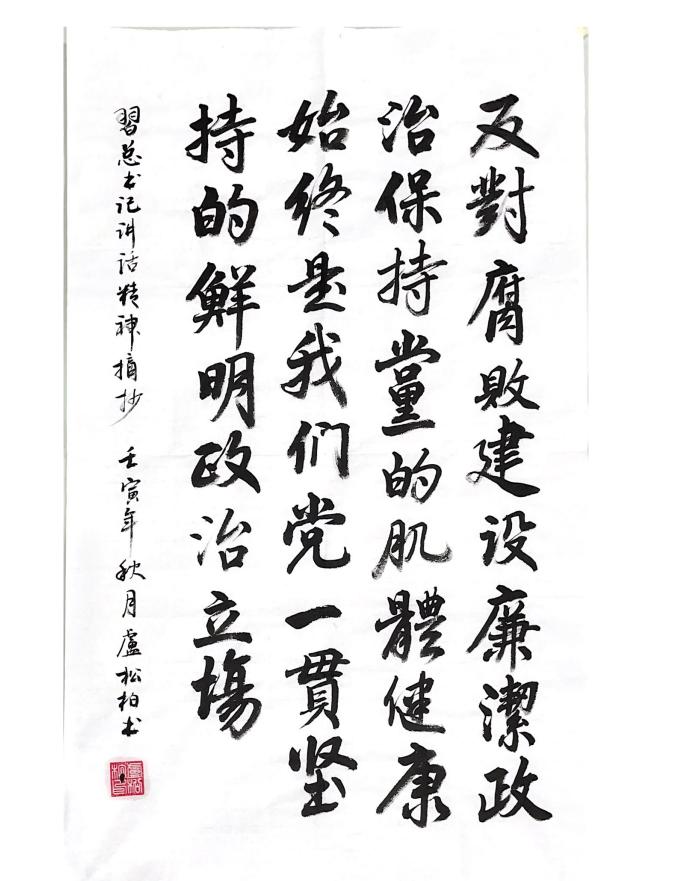 反對腐敗建设廉潔政
治保持黨的肌體健康
始终是我们党一贯坚
持的鮮明政治立場
習总书记讲话精神摘抄 壬寅年秋月盧松柏书